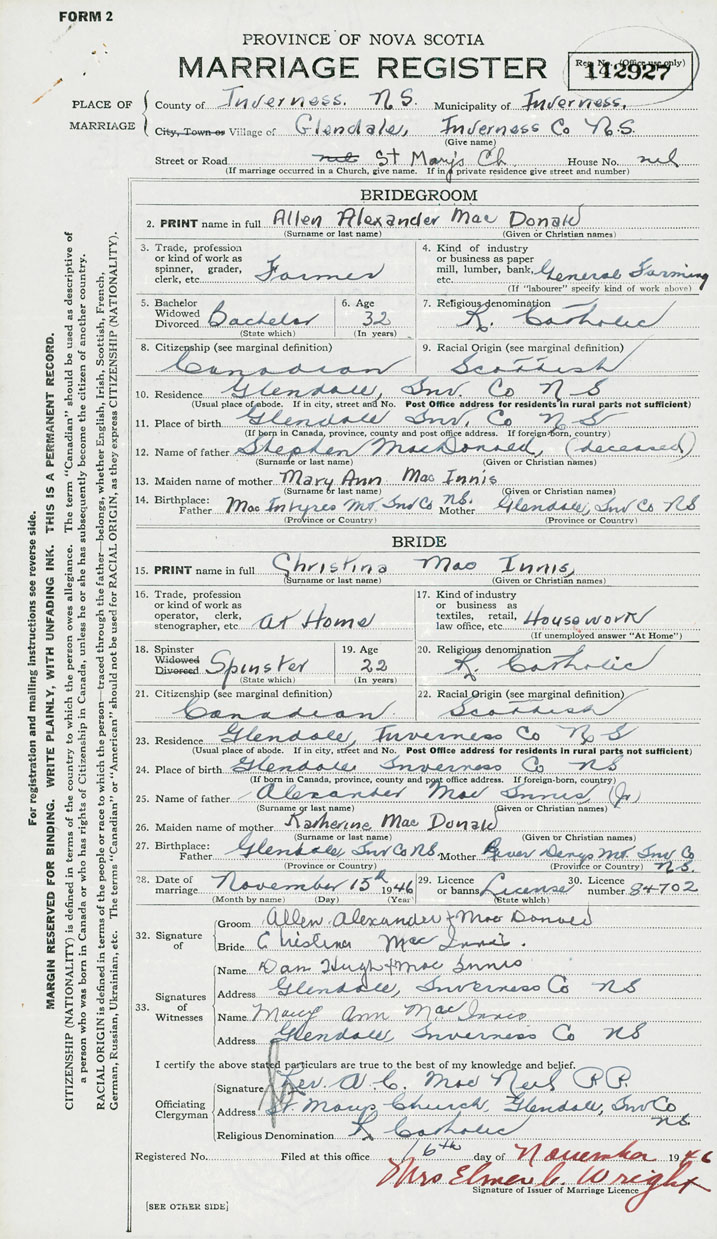 FORM 2
PROVINCE OF NOVA SCOTIA
MARRIAGE REGISTER
Reg. No. (Office use only)
142927
PLACE OF MARRIAGE
County of Inverness. N.S. Municipality of Inverness.
City, Town or Village of Glendale, Inverness Co N.S.
(Give name)
Street or Road nil St Mary's Ch. House No. nil
(If marriage occurred in a Church, give name. If in a private residence give street and number)
BRIDEGROOM
2. PRINT name in full Allen Alexander Mac Donald
(Surname or last name) (Given or Christian names)
3. Trade, profession or kind of work as spinner, grader, clerk, etc. Farmer
4. Kind of industry or business as paper mill, lumber, bank, etc. General Farming
(If "labourer" specify kind of work above)
5. Bachelor Widowed Divorced Bachelor
(State which)
6. Age 32
(In years)
7. Religious denomination R. Catholic
8. Citizenship (see marginal definition) Canadian
9. Racial Origin (see marginal definition) Scottish
10. Residence Glendale, Inv. Co N S
(Usual place of abode. If in city, street and No. Post Office address for residents in rural parts not sufficient)
11. Place of birth Glendale Inv. Co N S
(If born in Canada, province, county and post office address. If foreign-born, country)
12. Name of father Stephen MacDonald, (deceased)
(Surname or last name) (Given or Christian names)
13. Maiden name of mother Mary Ann Mac Innis
(Surname or last name) (Given or Christian names)
14. Birthplace: Father Mac Intyres Mt. Inv Co NS. Mother Glendale, Inv Co NS
(Province or Country) (Province or Country)
BRIDE
15. PRINT name in full Christina Mac Innis,
(Surname or last name) (Given or Christian names)
16. Trade, profession or kind of work as operator, clerk, stenographer, etc At Home
17. Kind of industry or business as textiles, retail, law office, etc. Housework
(If unemployed answer "At Home")
18. Spinster Widowed Divorced Spinster
(State which)
19. Age 22
(In years)
20. Religious denomination R. Catholic
21. Citizenship (see marginal definition) Canadian
22. Racial Origin (see marginal definition) Scottish
23. Residence Glendale, Inverness Co N S
(Usual place of abode. If in city, street and No. Post Office address for residents in rural parts not sufficient)
24. Place of birth Glendale Inverness Co NS
(If born in Canada, province, county and post office address. If foreign-born, country)
25. Name of father Alexander Mac Innis (Jr)
(Surname or last name) (Given or Christian names)
26. Maiden name of mother Katherine Mac Donald
(Surname or last name) (Given or Christian names)
27. Birthplace: Father Glendale, Inv Co NS. Mother River Denys Mt. Inv Co N.S.
(Province or Country) (Province or Country)
28. Date of marriage November 15th 1946
(Month by name) (Day) (Year)
29. Licence or banns License
(State which)
30. Licence number 84702
32. Signature of
Groom Allen Alexander Mac Donald
Bride Christina Mac Innis.
33. Signatures of Witnesses
Name Dan Hugh Mac Innis
Address Glendale, Inverness Co NS
Name Mary Ann MacInnis
Address Glendale, Inverness Co NS
I certify the above stated particulars are true to the best of my knowledge and belief.
Officiating Clergyman
Signature Rev. A. C. Mac Neil P.P.
Address St Marys Church, Glendale, Inv Co NS
Religious Denomination R Catholic
Registered No. Filed at this office 16th day of November 1946
Mrs Elmer C. Wright
Signature of Issuer of Marriage Licence
[SEE OTHER SIDE]
For registration and mailing instructions see reverse side.
MARGIN RESERVED FOR BINDING. WRITE PLAINLY, WITH UNFADING INK. THIS IS A PERMANENT RECORD.
CITIZENSHIP (NATIONALITY) is defined in terms of the country to which the person owes allegiance. The term "Canadian" should be used as descriptive of
a person who was born in Canada or who has rights of Citizenship in Canada, unless he or she has subsequently become the citizen of another country.
RACIAL ORIGIN is defined in terms of the people or race to which the person—traced through the father—belongs, whether English, Irish, Scottish, French,
German, Russian, Ukrainian, etc. The terms "Canadian" or "American" should not be used for RACIAL ORIGIN, as they express CITIZENSHIP (NATIONALITY).